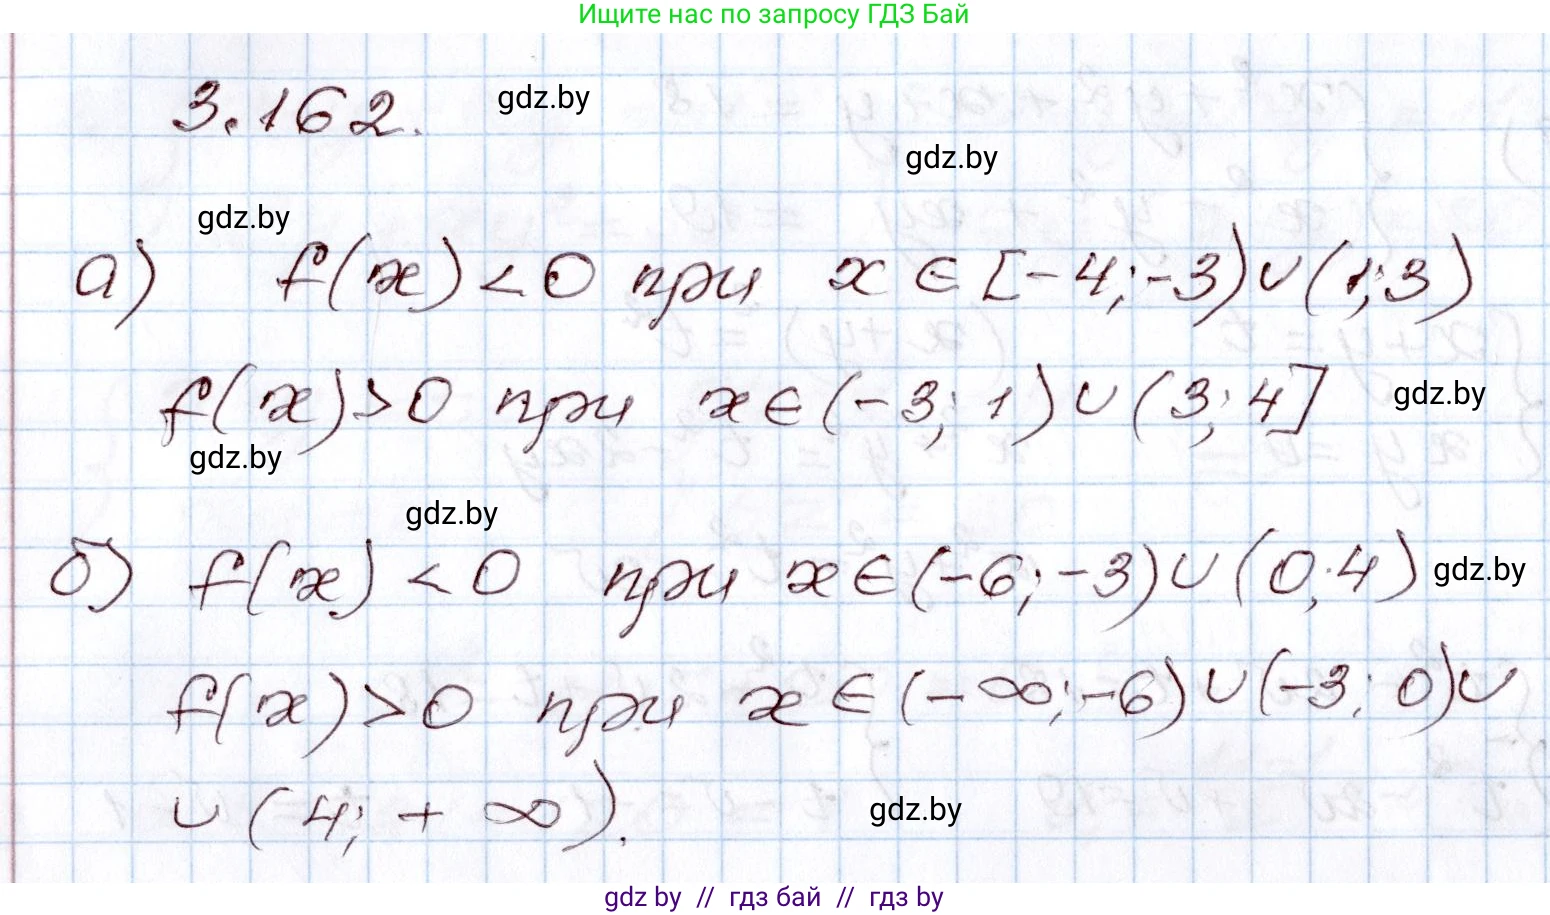 Ищите нас по запросу ГДЗ Бай
3.162. gdz.by
gdz.by
gdz.by
а) f(x) < 0 при x ∈ [-4; -3) ∪ (1; 3)
f(x) > 0 при x ∈ (-3; 1) ∪ (3; 4] gdz.by
gdz.by
gdz.by
б) f(x) < 0 при x ∈ (-6; -3) ∪ (0; 4) gdz.by
f(x) > 0 при x ∈ (-∞; -6) ∪ (-3; 0) ∪
∪ (4; +∞). gdz.by
gdz by // гдз бай // гдз by